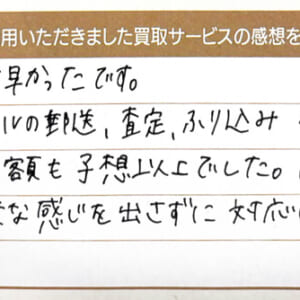 用いただきました買取サービスの感想を
早かったです。
ルの郵送、査定、ふり込み
額も予想以上でした。
な感じを出さずに対応